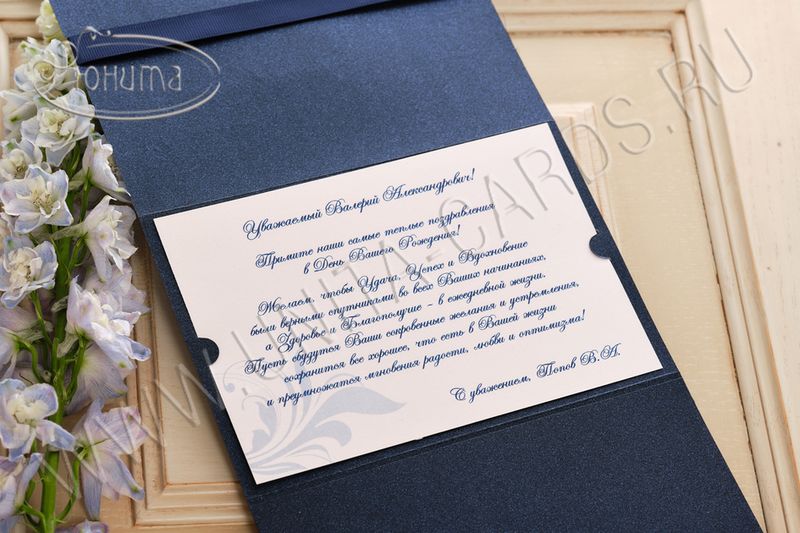 Юнита
WWW.UNITA-CARDS.RU
Уважаемый Валерий Александрович!
Примите наши самые теплые поздравления
в День Вашего Рождения!
Желаем, чтобы Удача, Успех и Вдохновение
были верными спутниками во всех Ваших начинаниях,
а Здоровье и Благополучие – в ежедневной жизни.
Пусть сбудутся Ваши сокровенные желания и устремления,
сохранится все хорошее, что есть в Вашей жизни
и преумножатся мгновения радости, любви и оптимизма!
С уважением, Попов В.А.